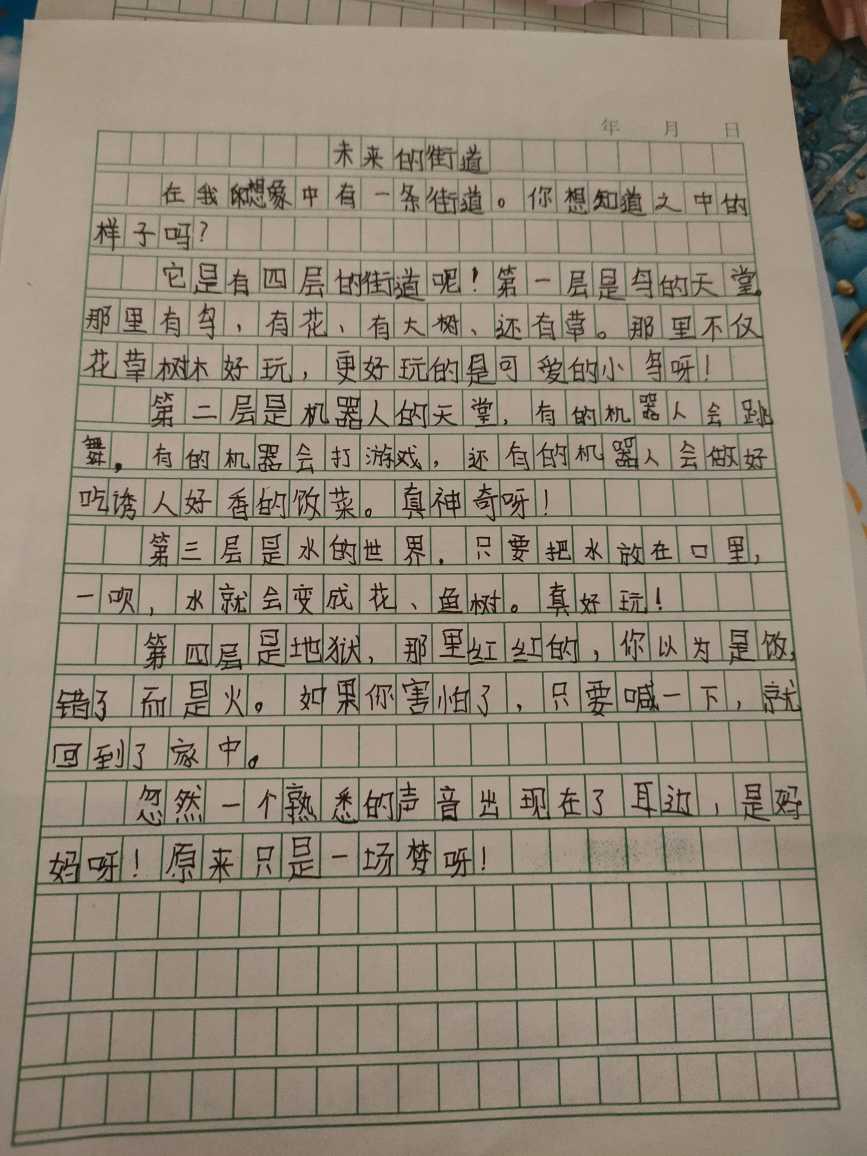 年 月 日
未来的街道
在我的想象中有一条街道。你想知道之中的
样子吗？
它是有四层的街道呢！第一层是鸟的天堂，
那里有鸟、有花、有大树、还有草。那里不仅
花草树木好玩，更好玩的是可爱的小鸟呀！
第二层是机器人的天堂，有的机器人会跳
舞，有的机器会打游戏，还有的机器人会做好
吃诱人好香的饭菜。真神奇呀！
第三层是水的世界．只要把水放在口里，
一吹，水就会变成花、鱼树。真好玩！
第四层是地狱，那里红红的，你以为是饭，
错了而是火。如果你害怕了，只要喊一下，就
回到了家中。
忽然一个熟悉的声音出现在了耳边，是妈
妈呀！原来只是一场梦呀！